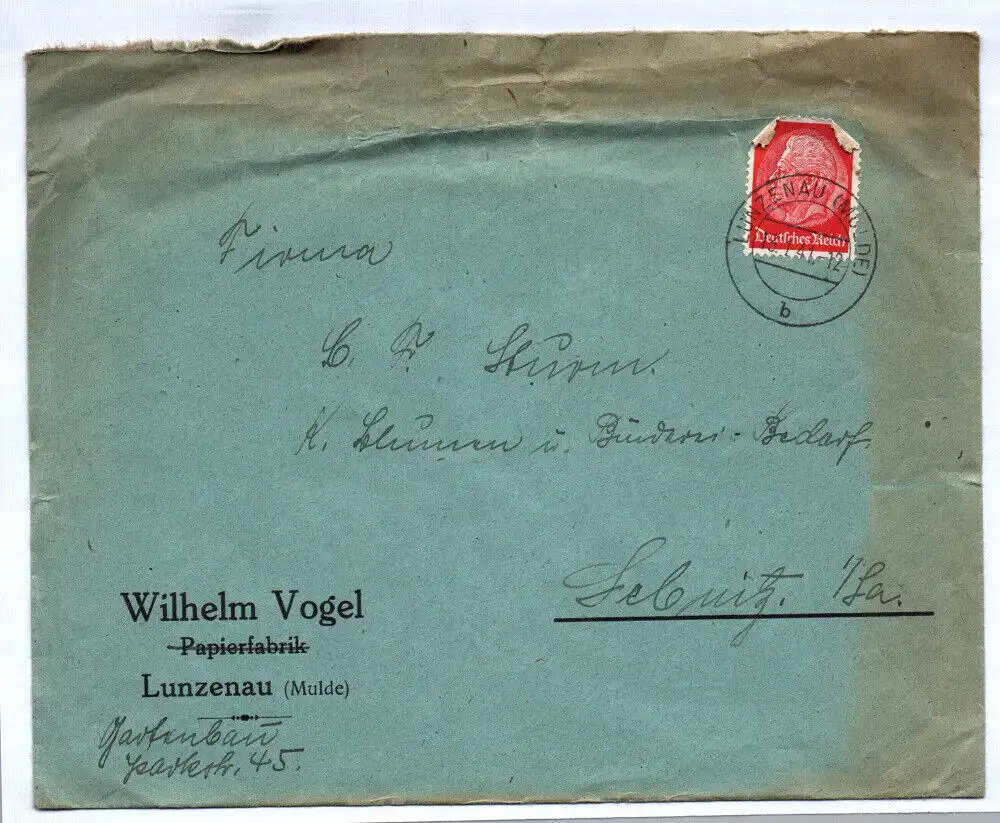 Deutsches Reich
LUNZENAU (MULDE)
41.-12
b
Firma
Sturm.
K. Blumen u. Binderei-Bedarf.
Sebnitz. i/Sa.
Wilhelm Vogel
Papierfabrik
Lunzenau (Mulde)
Gartenbau
Parkstr. 45.